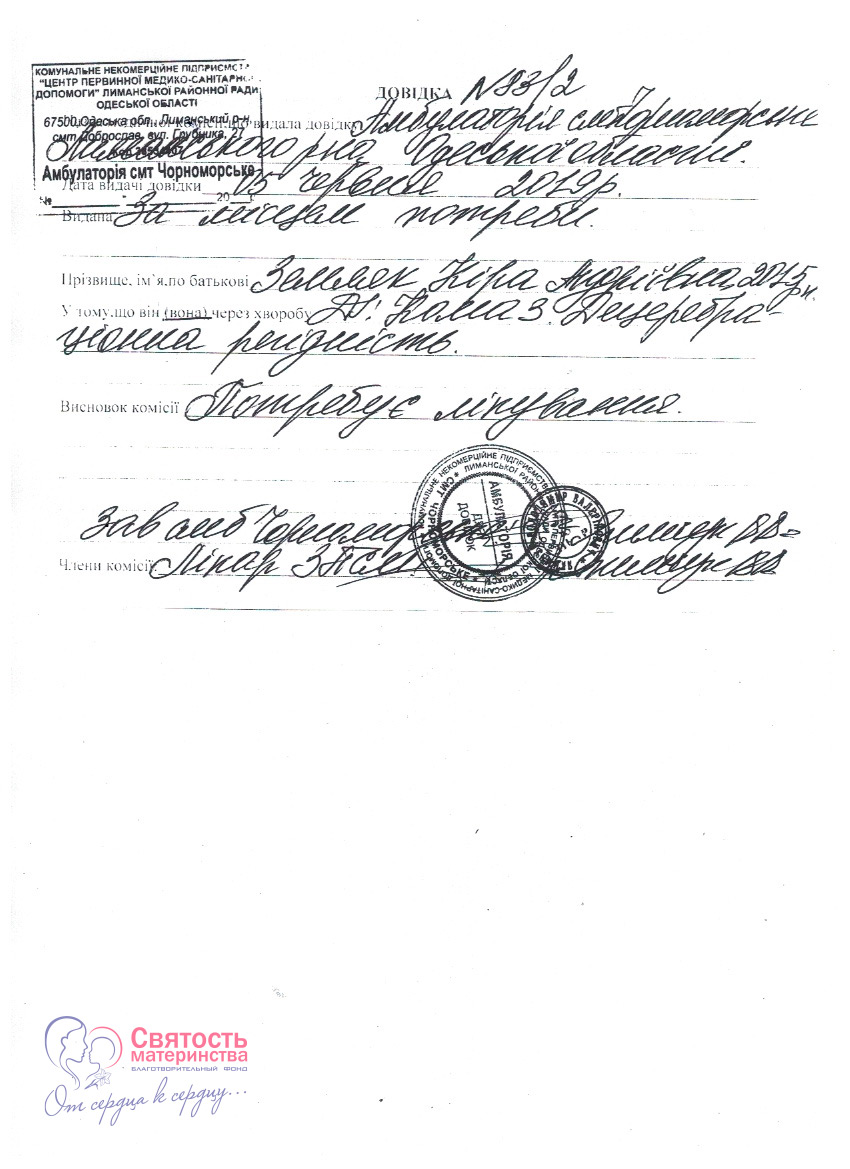 КОМУНАЛЬНЕ НЕКОМЕРЦІЙНЕ ПІДПРИЄМСТ
"ЦЕНТР ПЕРВИННОЇ МЕДИКО-САНІТАРНО
ДОПОМОГИ" ЛИМАНСЬКОЇ РАЙОННОЇ РАДИ
ОДЕСЬКОЇ ОБЛАСТІ
67500, Одеська обл., Лиманський р-н,
смт Доброслав, вул. Грубника, 27
Амбулаторія смт Чорноморське
№ 20
ДОВІДКА №93/2
що видала довідку Амбулаторія смт Чорноморське
Лиманського р-на, Одеської області.
Дата видачі довідки 05 червня 2019р.
Видана За місцем потреби.
Прізвище, ім'я,по батькові Земляк Кіра Андріївна, 2015 р.н.
У тому,що він (вона) через хворобу Ds: Кома 3. Децеребра-
ціонна регідність.
Висновок комісії Потребує лікування.
Зав амб Чорноморське
Члени комісії: Лікар ЗПСМ
КОМУНАЛЬНЕ НЕКОМЕРЦІЙНЕ ПІДПРИЄМСТВО
ЛИМАНСЬКОЇ РАЙОН
СМТ ЧОРНОМОРСЬКЕ
АМБУЛАТОРІЯ
ДЛЯ
ДОВІДОК
Святость
материнства
БЛАГОТВОРИТЕЛЬНЫЙ ФОНД
От сердца к сердцу...